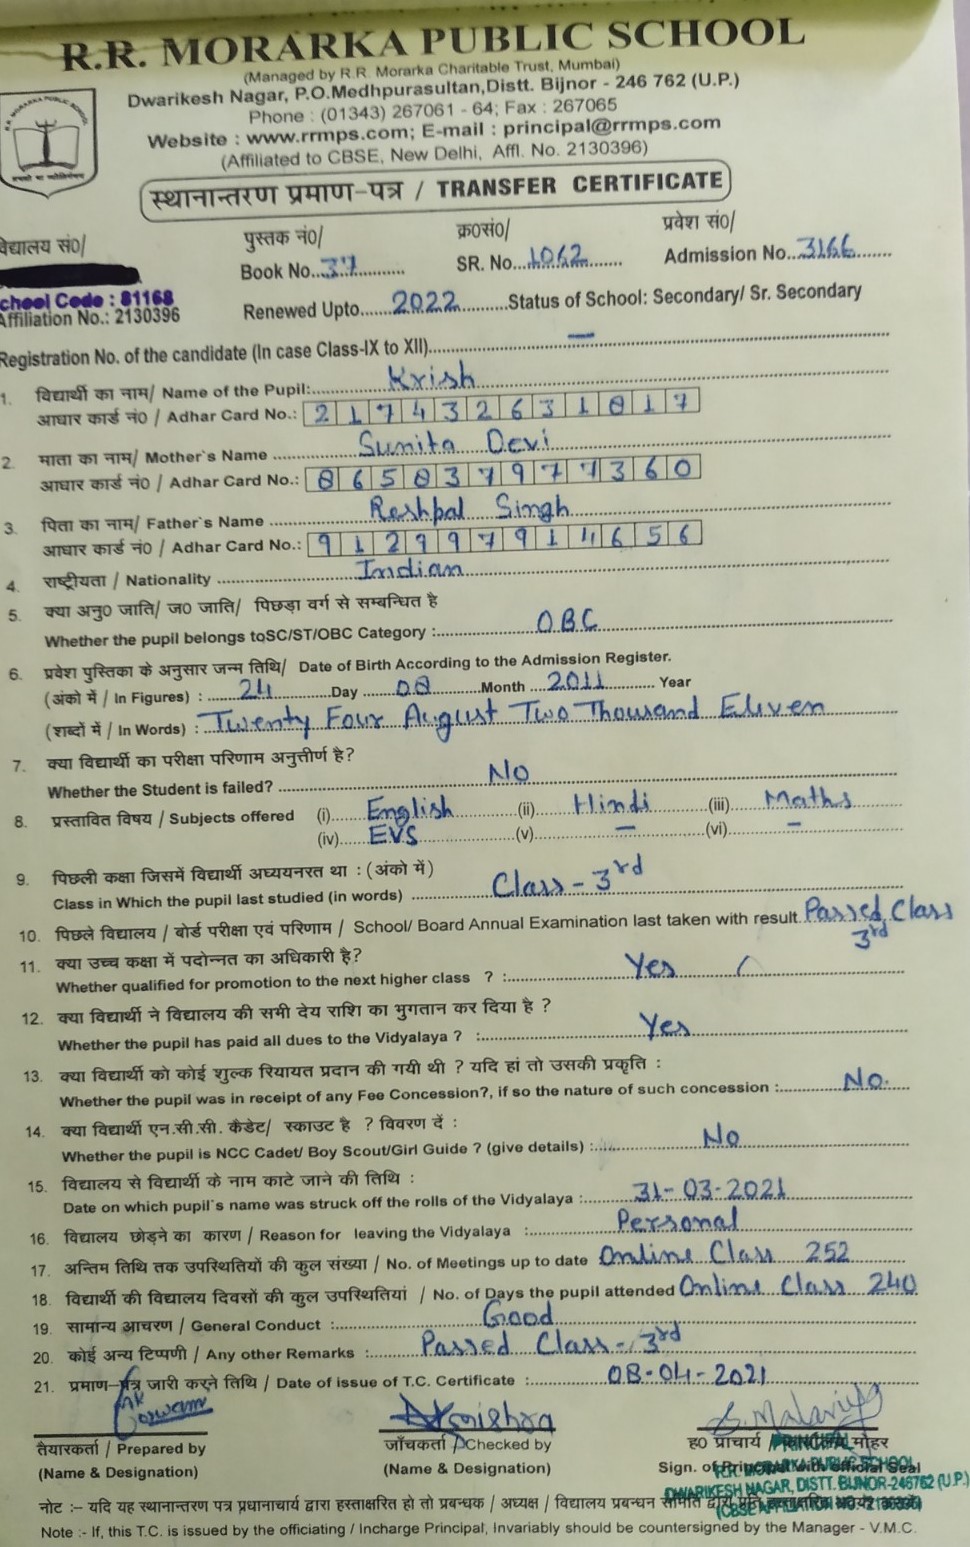 R.R. MORARKA PUBLIC SCHOOL
(Managed by R.R. Morarka Charitable Trust, Mumbai)
Dwarikesh Nagar, P.O.Medhpurasultan,Distt. Bijnor - 246 762 (U.P.)
Phone : (01343) 267061 - 64; Fax : 267065
Website : www.rrmps.com; E-mail : principal@rrmps.com
(Affiliated to CBSE, New Delhi, Affl. No. 2130396)
स्थानान्तरण प्रमाण-पत्र / TRANSFER CERTIFICATE
विद्यालय सं०/ पुस्तक नं०/ क्र०सं०/ प्रवेश सं०/
Book No...37............ SR. No...1062........ Admission No...3166........
chool Code : 81168
Affiliation No.: 2130396 Renewed Upto......2022..........Status of School: Secondary/ Sr. Secondary
Registration No. of the candidate (In case Class-IX to XII)........ — ........
1. विद्यार्थी का नाम/ Name of the Pupil:........Krish........
आधार कार्ड नं० / Adhar Card No.: 217432631817
2. माता का नाम/ Mother`s Name ........Sunita Devi........
आधार कार्ड नं० / Adhar Card No.: 865837977360
3. पिता का नाम/ Father`s Name ........Reshpal Singh........
आधार कार्ड नं० / Adhar Card No.: 912997914656
4. राष्ट्रीयता / Nationality ........Indian........
5. क्या अनु० जाति/ ज० जाति/ पिछड़ा वर्ग से सम्बन्धित है
Whether the pupil belongs toSC/ST/OBC Category :........OBC........
6. प्रवेश पुस्तिका के अनुसार जन्म तिथि/ Date of Birth According to the Admission Register.
(अंको में / In Figures) : ....24........Day ....08........Month ...2011........ Year
(शब्दों में / In Words) : Twenty Four August Two Thousand Eleven
7. क्या विद्यार्थी का परीक्षा परिणाम अनुत्तीर्ण है?
Whether the Student is failed? ........No........
8. प्रस्तावित विषय / Subjects offered (i)....English........ (ii)....Hindi........ (iii)....Maths
(iv)....EVS........(v)....—........(vi)....—........
9. पिछली कक्षा जिसमें विद्यार्थी अध्ययनरत था : (अंको में)
Class in Which the pupil last studied (in words) ........Class - 3rd........
10. पिछले विद्यालय / बोर्ड परीक्षा एवं परिणाम / School/ Board Annual Examination last taken with result..Passed Class
3rd
11. क्या उच्च कक्षा में पदोन्नत का अधिकारी है?
Whether qualified for promotion to the next higher class ? :........Yes........
12. क्या विद्यार्थी ने विद्यालय की सभी देय राशि का भुगतान कर दिया है ?
Whether the pupil has paid all dues to the Vidyalaya ? :........Yes........
13. क्या विद्यार्थी को कोई शुल्क रियायत प्रदान की गयी थी ? यदि हां तो उसकी प्रकृति :
Whether the pupil was in receipt of any Fee Concession?, if so the nature of such concession :........No.
14. क्या विद्यार्थी एन.सी.सी. कैडेट/ स्काउट है ? विवरण दें :
Whether the pupil is NCC Cadet/ Boy Scout/Girl Guide ? (give details) :........No........
15. विद्यालय से विद्यार्थी के नाम काटे जाने की तिथि :
Date on which pupil`s name was struck off the rolls of the Vidyalaya :........31-03-2021........
16. विद्यालय छोड़ने का कारण / Reason for leaving the Vidyalaya :........Personal........
17. अन्तिम तिथि तक उपस्थितियों की कुल संख्या / No. of Meetings up to date Online Class 252
18. विद्यार्थी की विद्यालय दिवसों की कुल उपस्थितियां / No. of Days the pupil attended Online Class 240
19. सामान्य आचरण / General Conduct :........Good........
20. कोई अन्य टिप्पणी / Any other Remarks :........Passed Class - 3rd........
21. प्रमाण-पत्र जारी करने तिथि / Date of issue of T.C. Certificate :........08-04-2021........
तैयारकर्ता / Prepared by जाँचकर्ता / Checked by ह० प्राचार्य / मोहर
PRINCIPAL
(Name & Designation) (Name & Designation) Sign. of Principal with official Seal
R.R. MORARKA PUBLIC SCHOOL
DWARIKESH NAGAR, DISTT. BIJNOR-246762 (U.P.)
(CBSE AFFILIATION NO. 2130396)
नोट :- यदि यह स्थानान्तरण पत्र प्रधानाचार्य द्वारा हस्ताक्षरित हो तो प्रबन्धक / अध्यक्ष / विद्यालय प्रबन्धन समिति द्वारा
Note :- If, this T.C. is issued by the officiating / Incharge Principal, Invariably should be countersigned by the Manager - V.M.C.